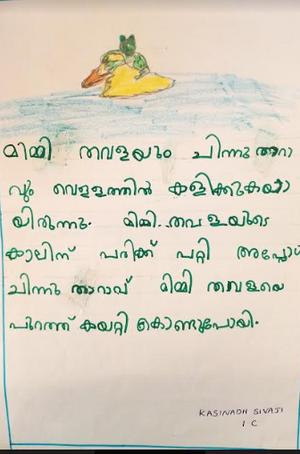 മിമ്മി തവളയും ചിന്നു താറാ
വും വെള്ളത്തിൽ കളിക്കുകയാ
യിരുന്നു. മിമ്മി തവളയുടെ
കാലിന് പരിക്ക് പറ്റി അപ്പോൾ
ചിന്നു താറാവ് മിമ്മി തവളയെ
പുറത്ത് കയറ്റി കൊണ്ടുപോയി.
KASINADH SIVAJI
I C